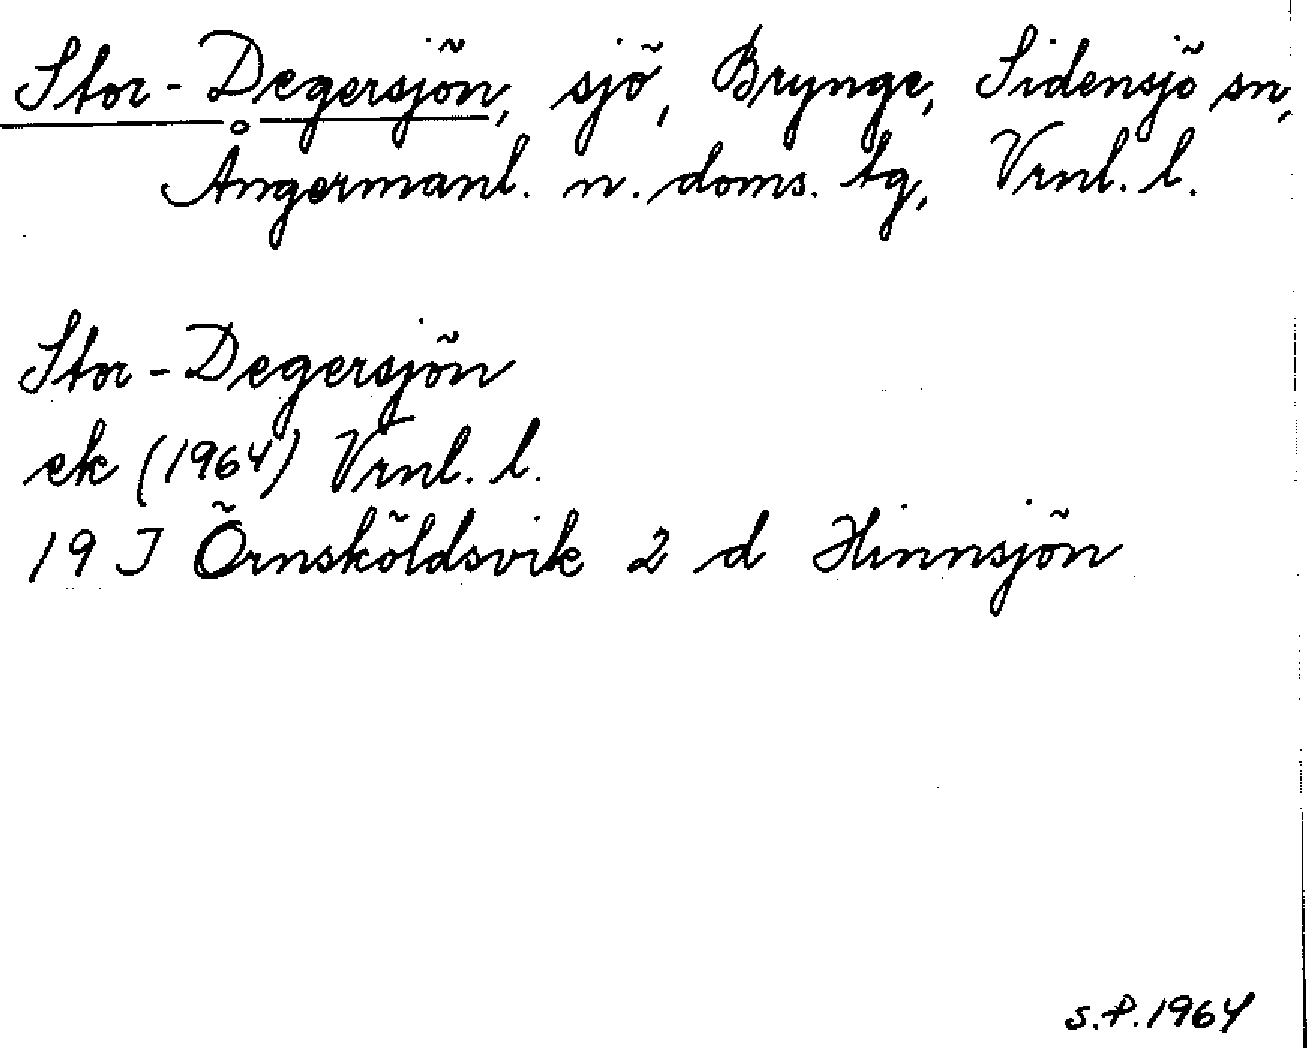 Stor-Degersjön, sjö, Brynge, Sidensjö sn,
Ångermanl. n. doms. tg, Vrnl. l.
Stor-Degersjön
ek (1964) Vrnl. l.
19 J Örnsköldsvik 2 d Hinnsjön
S.P. 1964